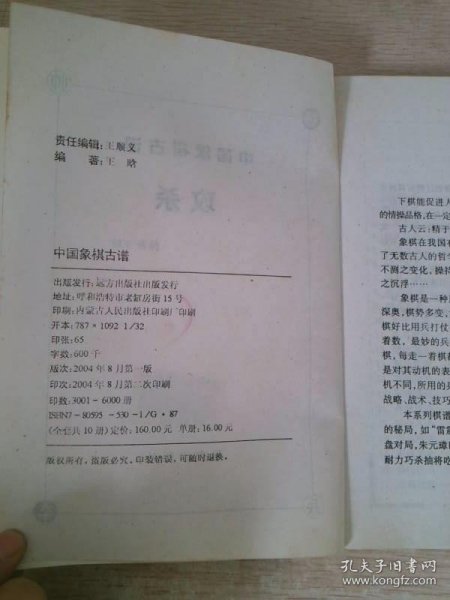 责任编辑：王顺义
编 著：王 晗
中国象棋古谱
出版发行：远方出版社出版发行
地址：呼和浩特市老缸房街 15 号
印刷：内蒙古人民出版社印刷厂印刷
开本：787×1092 1/32
印张：65
字数：600 千
版次：2004 年 8 月第一版
印次：2004 年 8 月第二次印刷
印数：3001-6000 册
ISBN7-80595-530-1/G·87
(全套共 10 册)定价：160.00 元 单册：16.00 元
版权所有，盗版必究，印装错误，可随时退换。
下棋能促进人
的情操品格，在一定
古人云：精于
象棋在我国有
了无数古人的哲
不测之变化，操
之沉浮……
象棋是一种
深奥，棋势多变，
棋好比用兵打仗
着数，最妙的兵
棋，每走一着棋都
是对其动机的表
机不同，所用的
战略、战术、技巧
本系列棋谱
的秘局，如“雷
盘对局，朱元璋
耐力巧杀抽将吃
孔夫子旧书网
www.kongfz.com